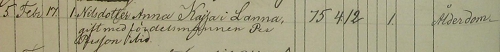 5. Febr. 17. 1. Nilsdotter Anna Kajsa i Lanna, 75 4/12 1. Ålderdom.
gift med fördelsmannen Per
Ersson ibid